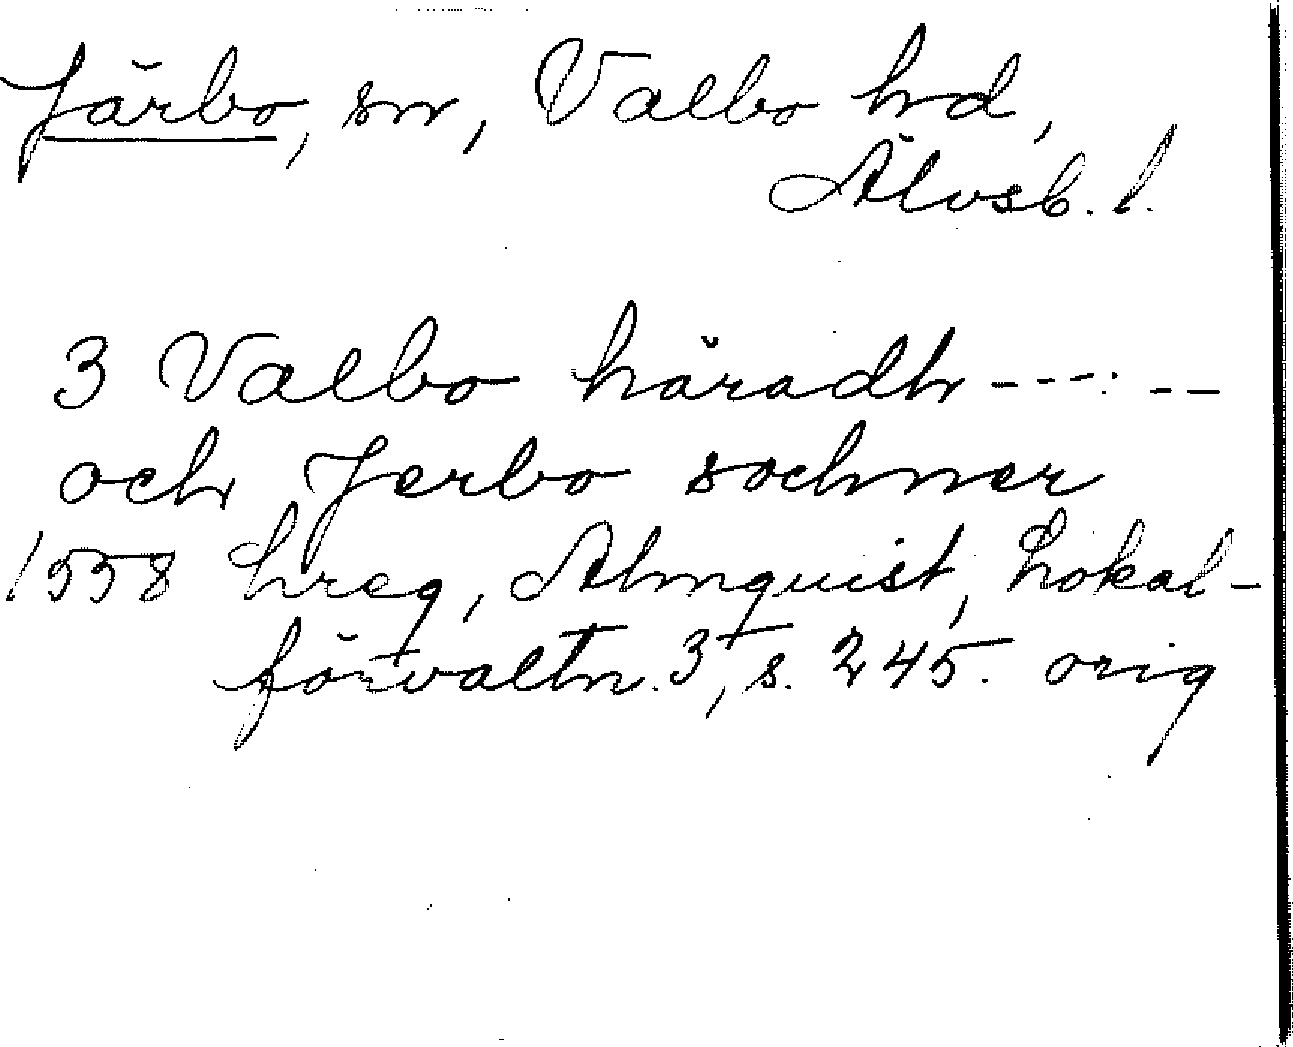 Järbo, sn, Valbo hd,
Älvsb. l.
3 Valbo häradh - - - - - -
och Jerbo sochner
1558 hreg, Almquist, Lokal-
förvaltn. 3, s. 245. orig